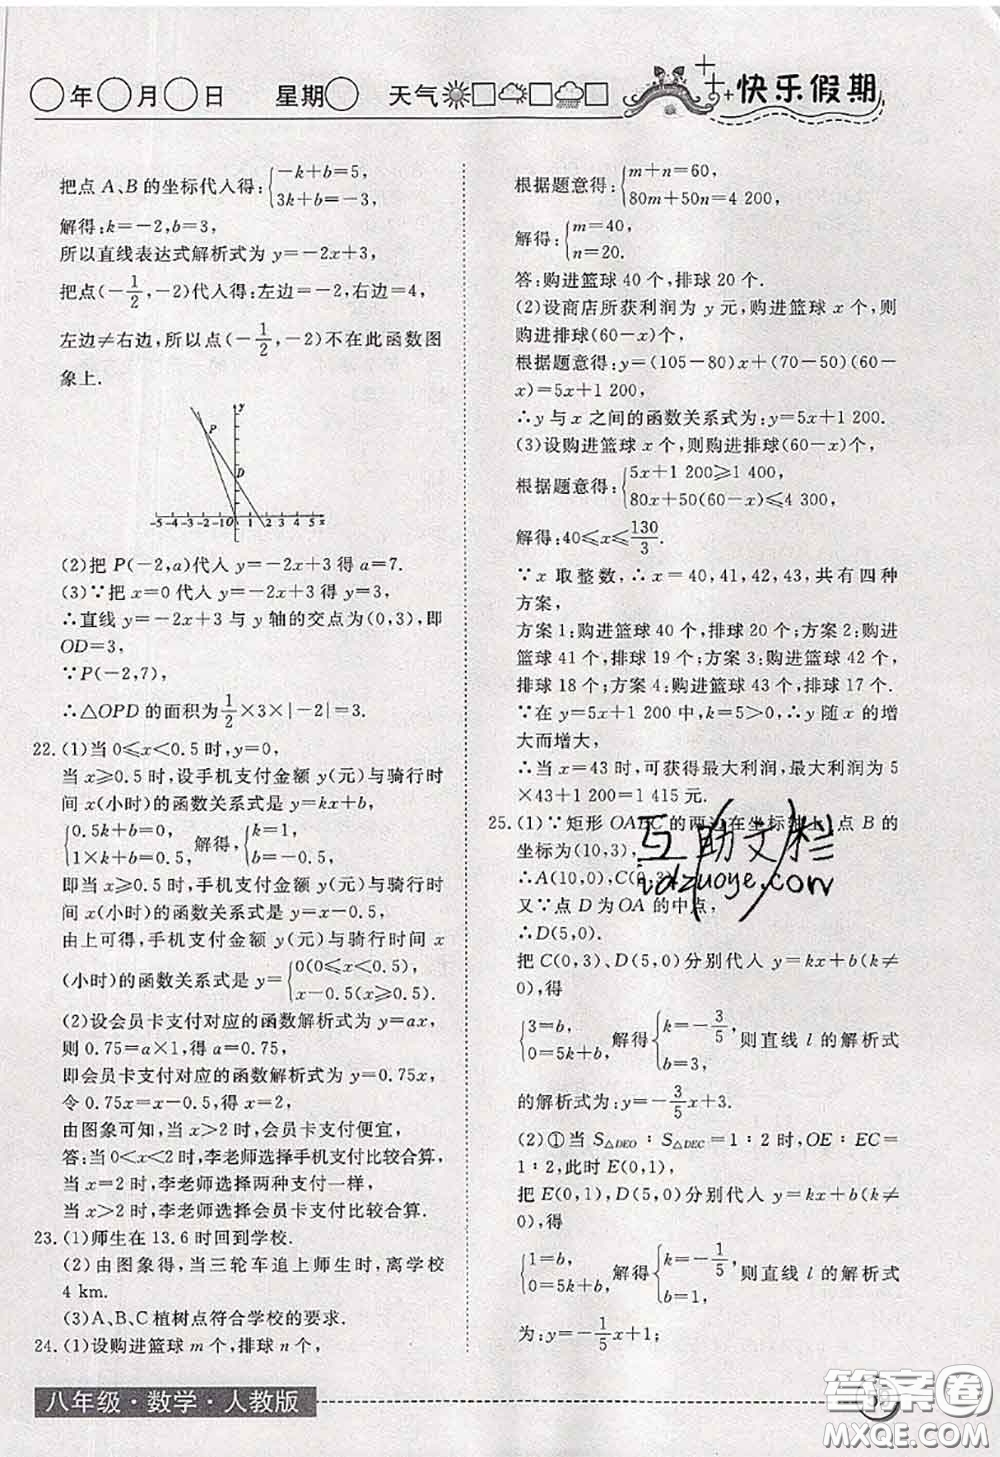 ○年○月○日 星期○ 天气□□□ 快乐假期
把点 A、B 的坐标代入得:{-k+b=5,
3k+b=-3,
解得:k=-2,b=3,
所以直线表达式解析式为 y=-2x+3,
把点(-1/2,-2)代入得:左边=-2,右边=4,
左边≠右边,所以点(-1/2,-2)不在此函数图
象上.
y
P
D
-5-4-3-2-1O 1 2 3 4 5 x
(2)把 P(-2,a)代入 y=-2x+3 得 a=7.
(3)∵把 x=0 代入 y=-2x+3 得 y=3,
∴直线 y=-2x+3 与 y 轴的交点为(0,3),即
OD=3,
∵P(-2,7),
∴△OPD 的面积为1/2×3×|-2|=3.
22.(1)当 0≤x<0.5 时,y=0,
当 x≥0.5 时,设手机支付金额 y(元)与骑行时
间 x(小时)的函数关系式是 y=kx+b,
{0.5k+b=0, 解得,{k=1,
1×k+b=0.5, b=-0.5,
即当 x≥0.5 时,手机支付金额 y(元)与骑行时
间 x(小时)的函数关系式是 y=x-0.5,
由上可得,手机支付金额 y(元)与骑行时间 x
(小时)的函数关系式是 y={0(0≤x<0.5)
x-0.5(x≥0.5).
(2)设会员卡支付对应的函数解析式为 y=ax,
则 0.75=a×1,得 a=0.75,
即会员卡支付对应的函数解析式为 y=0.75x,
令 0.75x=x-0.5,得 x=2,
由图象可知,当 x>2 时,会员卡支付便宜,
答:当 0<x<2 时,李老师选择手机支付比较合算,
当 x=2 时,李老师选择两种支付一样,
当 x>2 时,李老师选择会员卡支付比较合算.
23.(1)师生在 13.6 时回到学校.
(2)由图象得,当三轮车追上师生时,离学校
4 km.
(3)A、B、C 植树点符合学校的要求.
24.(1)设购进篮球 m 个,排球 n 个,
根据题意得:{m+n=60,
80m+50n=4 200,
解得:{m=40,
n=20.
答:购进篮球 40 个,排球 20 个.
(2)设商店所获利润为 y 元,购进篮球 x 个,则
购进排球(60-x)个,
根据题意得:y=(105-80)x+(70-50)(60-
x)=5x+1 200,
∴y 与 x 之间的函数关系式为:y=5x+1 200.
(3)设购进篮球 x 个,则购进排球(60-x)个,
根据题意得:{5x+1 200≥1 400,
80x+50(60-x)≤4 300,
解得:40≤x≤130/3.
∵x 取整数,∴x=40,41,42,43,共有四种
方案,
方案 1:购进篮球 40 个,排球 20 个;方案 2:购进
篮球 41 个,排球 19 个;方案 3:购进篮球 42 个,
排球 18 个;方案 4:购进篮球 43 个,排球 17 个.
∵在 y=5x+1 200 中,k=5>0,∴y 随 x 的增
大而增大,
∴当 x=43 时,可获得最大利润,最大利润为 5
×43+1 200=1 415 元.
25.(1)∵矩形 OABC 的两边在坐标轴上,点 B 的
坐标为(10,3),
∴A(10,0),C(0,3),
又∵点 D 为 OA 的中点,
∴D(5,0).
把 C(0,3)、D(5,0)分别代入 y=kx+b(k≠
0),得
{3=b, 解得{k=-3/5, 则直线 l 的解析式
0=5k+b, b=3,
的解析式为:y=-3/5x+3.
(2)①当 S△DEO∶S△DEC=1∶2 时,OE∶EC=
1∶2,此时 E(0,1),
把 E(0,1)、D(5,0)分别代入 y=kx+b(k≠
0),得
{1=b, 解得{k=-1/5, 则直线 l 的解析式
0=5k+b, b=1,
为:y=-1/5x+1;
互助文栏
idzuoye.com
八年级·数学·人教版
答案卷
MXQE.COM